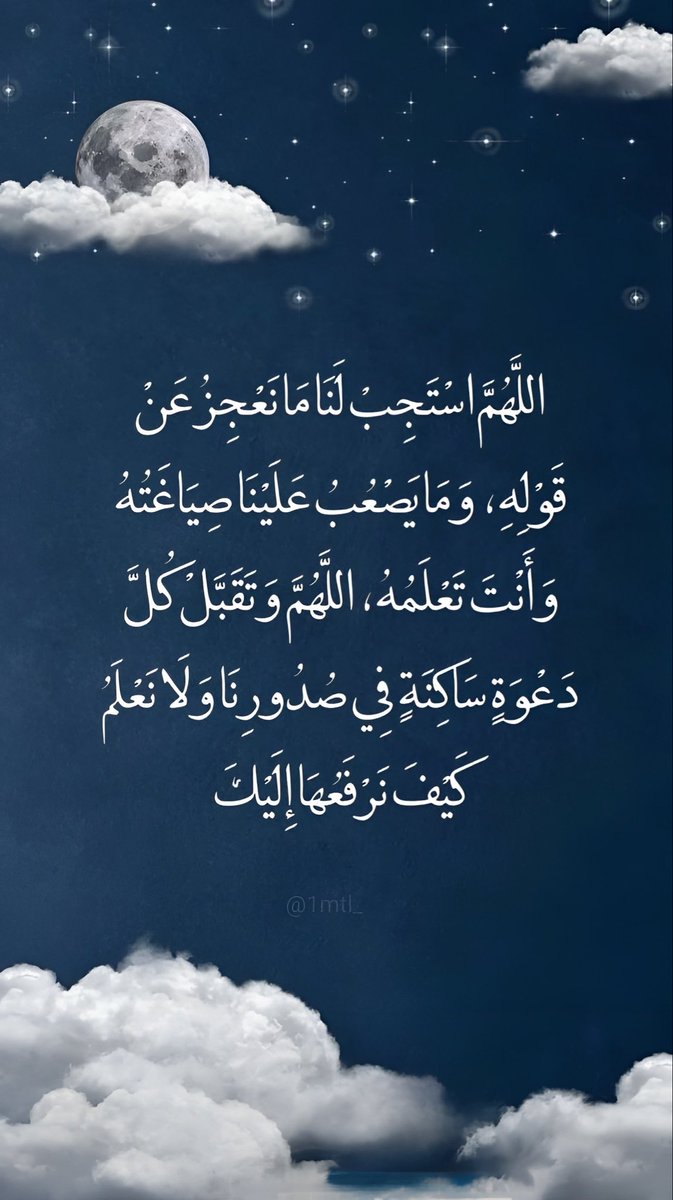 اللَّهُمَّ اسْتَجِبْ لَنَا مَا نَعْجِزُ عَنْ
قَوْلِهِ، وَمَا يَصْعُبُ عَلَيْنَا صِيَاغَتُهُ
وَأَنْتَ تَعْلَمُهُ، اللَّهُمَّ وَتَقَبَّلْ كُلَّ
دَعْوَةٍ سَاكِنَةٍ فِي صُدُورِنَا وَلَا نَعْلَمُ
كَيْفَ نَرْفَعُهَا إِلَيْكَ
@1mtl_